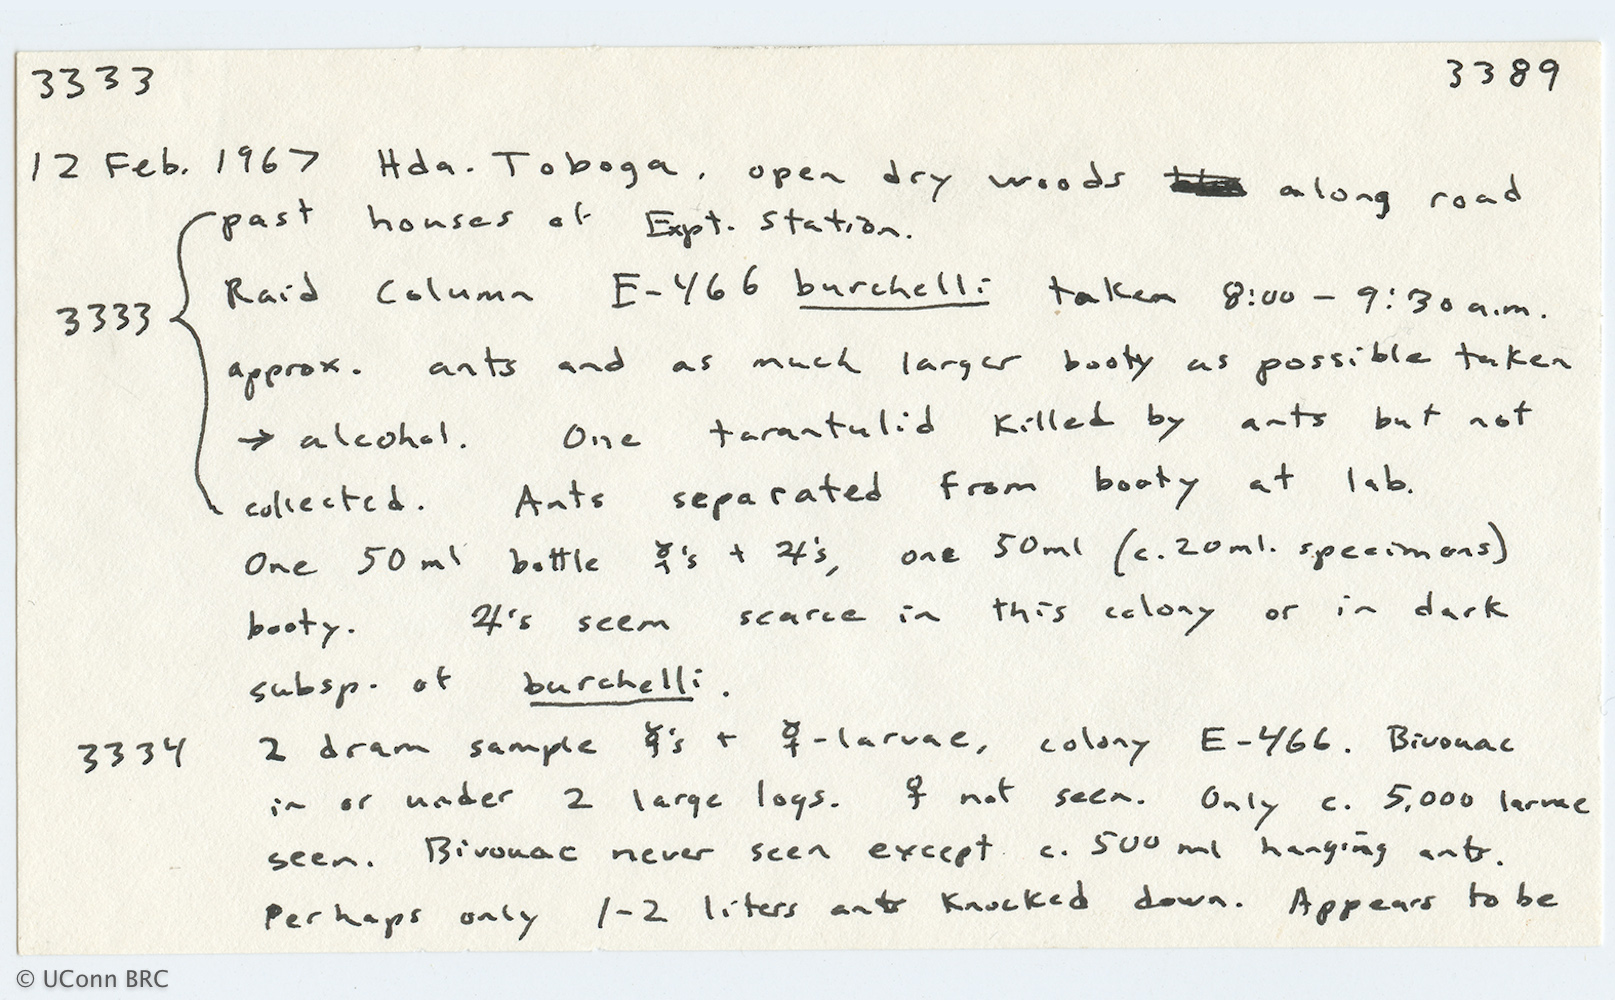 3333 3389
12 Feb. 1967 Hda. Toboga, open dry woods along road
past houses of Expt. Station.
3333 Raid Column E-466 burchelli taken 8:00 – 9:30 a.m.
approx. ants and as much larger booty as possible taken
→ alcohol. One tarantulid killed by ants but not
collected. Ants separated from booty at lab.
One 50 ml bottle ☿'s + ♃'s, one 50ml (c. 20ml. specimens)
booty. ♃'s seem scarce in this colony or in dark
subsp. of burchelli.
3334 2 dram sample ☿'s + ☿-larvae, colony E-466. Bivouac
in or under 2 large logs. ♀ not seen. Only c. 5,000 larvae
seen. Bivouac never seen except c. 500 ml hanging ants.
Perhaps only 1-2 liters ants knocked down. Appears to be
© UConn BRC